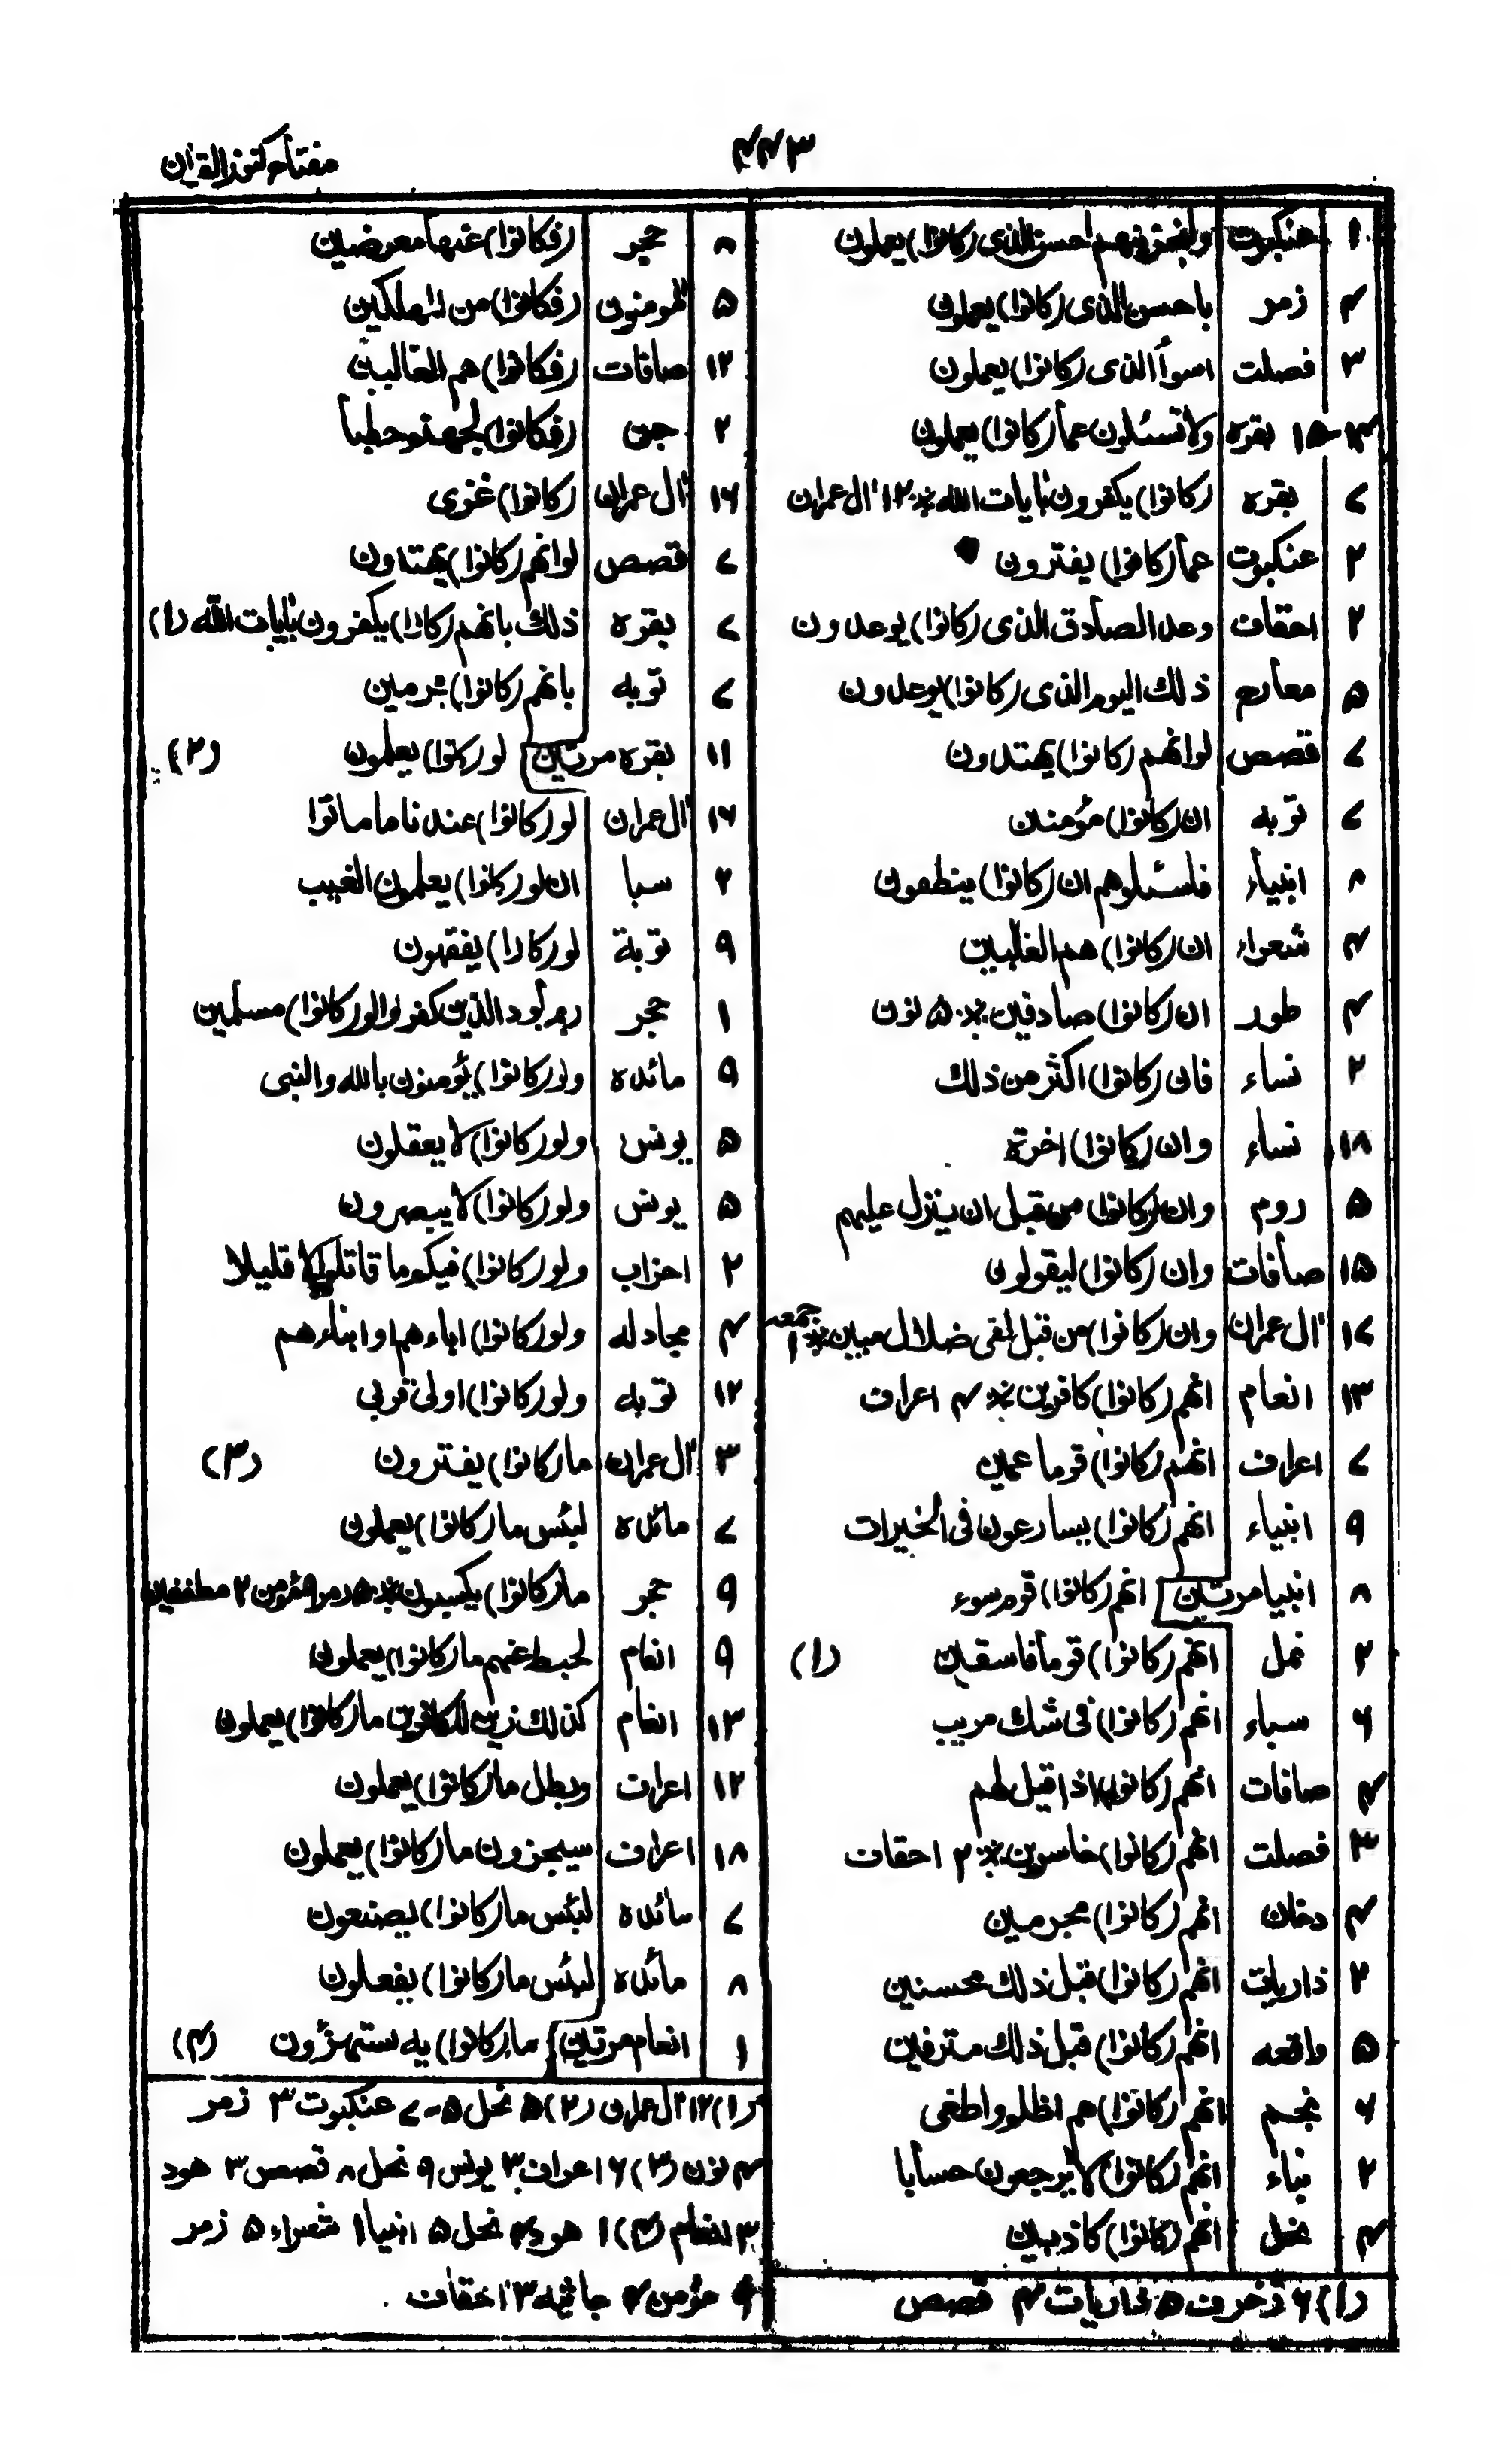 ۴۴۳
مفتاح کنوز القرآن
۱ عنکبوت ولنجزینهم احسن الذی (کانوا) یعملون
۴ زمر باحسن الذی (کانوا) یعملون
۳ فصلت اسوأ الذی (کانوا) یعملون
۱۴-۱۵ بقره ولاتسئلون عما (کانوا) یعملون
۷ بقره (کانوا) یکفرون بآیات الله * ۱۲ آل عمران
۲ عنکبوت عما (کانوا) یفترون
۲ احقاف وعد الصادق الذی (کانوا) یوعدون
۵ معارج ذلك الیوم الذی (کانوا) یوعدون
۷ قصص لوانهم (کانوا) یهتدون
۷ توبه ان (کانوا) مؤمنین
۸ انبیاء فاسئلوهم ان (کانوا) ینطقون
۴ شعراء ان (کانوا) هم الغالبین
۴ طور ان (کانوا) صادقین * ۵ نون
۲ نساء فان (کانوا) اکثر من ذلك
۱۸ نساء وان (کانوا) اخوة
۵ روم وان (کانوا) من قبل ان ینزل علیهم
۱۵ صافات وان (کانوا) لیقولون
۱۷ آل عمران وان (کانوا) من قبل لفی ضلال مبین * ۱ جمعه
۱۳ انعام انهم (کانوا) کافرین * ۴ اعراف
۷ اعراف انهم (کانوا) قوما عمین
۹ انبیاء انهم (کانوا) یسارعون فی الخیرات
۸ انبیا مرتین انهم (کانوا) قوم سوء
۲ نمل انهم (کانوا) قوما فاسقین (۱)
۶ سباء انهم (کانوا) فی شك مریب
۴ صافات انهم (کانوا) اذا قیل لهم
۳ فصلت انهم (کانوا) خاسرین * ۲ احقاف
۴ دخان انهم (کانوا) مجرمین
۲ ذاریات انهم (کانوا) قبل ذلك محسنین
۵ واقعه انهم (کانوا) قبل ذلك مترفین
۶ نجم انهم (کانوا) هم اظلم واطغی
۲ نباء انهم (کانوا) لا یرجعون حسابا
۴ نحل انهم (کانوا) کاذبین
(۱) ۶ زخرف ۵ ذاریات ۴ قصص
۸ حجر (فکانوا) عنها معرضین
۵ المومنون (فکانوا) من المهلکین
۱۲ صافات (فکانوا) هم الغالبین
۲ جن (فکانوا) لجهنم حطبا
۱۶ آل عمران (کانوا) غزی
۷ قصص لوانهم (کانوا) یهتدون
۷ بقره ذلك بانهم (کانوا) یکفرون بآیات الله (۱)
۷ توبه بانهم (کانوا) مجرمین
۱۱ بقره مرتین لو (کانوا) یعلمون (۲)
۱۶ آل عمران لو (کانوا) عندنا ماماتوا
۲ سبا ان لو (کانوا) یعلمون الغیب
۹ توبة لو (کانوا) یفقهون
۱ حجر ربما یود الذین کفروا لو (کانوا) مسلمین
۹ مائده ولو (کانوا) یؤمنون بالله والنبی
۵ یونس ولو (کانوا) لا یعقلون
۵ یونس ولو (کانوا) لا یبصرون
۲ احزاب ولو (کانوا) فیکم ما قاتلوا الا قلیلا
۴ مجادله ولو (کانوا) اباءهم او ابناءهم
۱۲ توبه ولو (کانوا) اولی قربی
۳ آل عمران ما (کانوا) یفترون (۳)
۷ مائده لبئس ما (کانوا) یعملون
۹ حجر ما (کانوا) یکسبون * ۵ زمر ۹ مؤمن ۲ مطففین
۹ انعام لحبط عنهم ما (کانوا) یعملون
۱۳ انعام کذلك زین للکافرین ما (کانوا) یعملون
۱۲ اعراف وبطل ما (کانوا) یعملون
۱۸ اعراف سیجزون ما (کانوا) یعملون
۷ مائده لبئس ما (کانوا) یصنعون
۸ مائده لبئس ما (کانوا) یفعلون
۱ انعام مرتین ما (کانوا) به یستهزؤن (۴)
(۱) ۱۲ آل عمران (۲) ۵ نحل ۵-۷ عنکبوت ۳ زمر
۴ نون (۳) ۶ اعراف ۳ یونس ۹ نحل ۸ قصص ۳ هود
۳ انعام (۴) ۱ هود ۴ نحل ۵ انبیا ۱ شعراء ۵ زمر
۹ مؤمن ۴ جاثیه ۳ احقاف